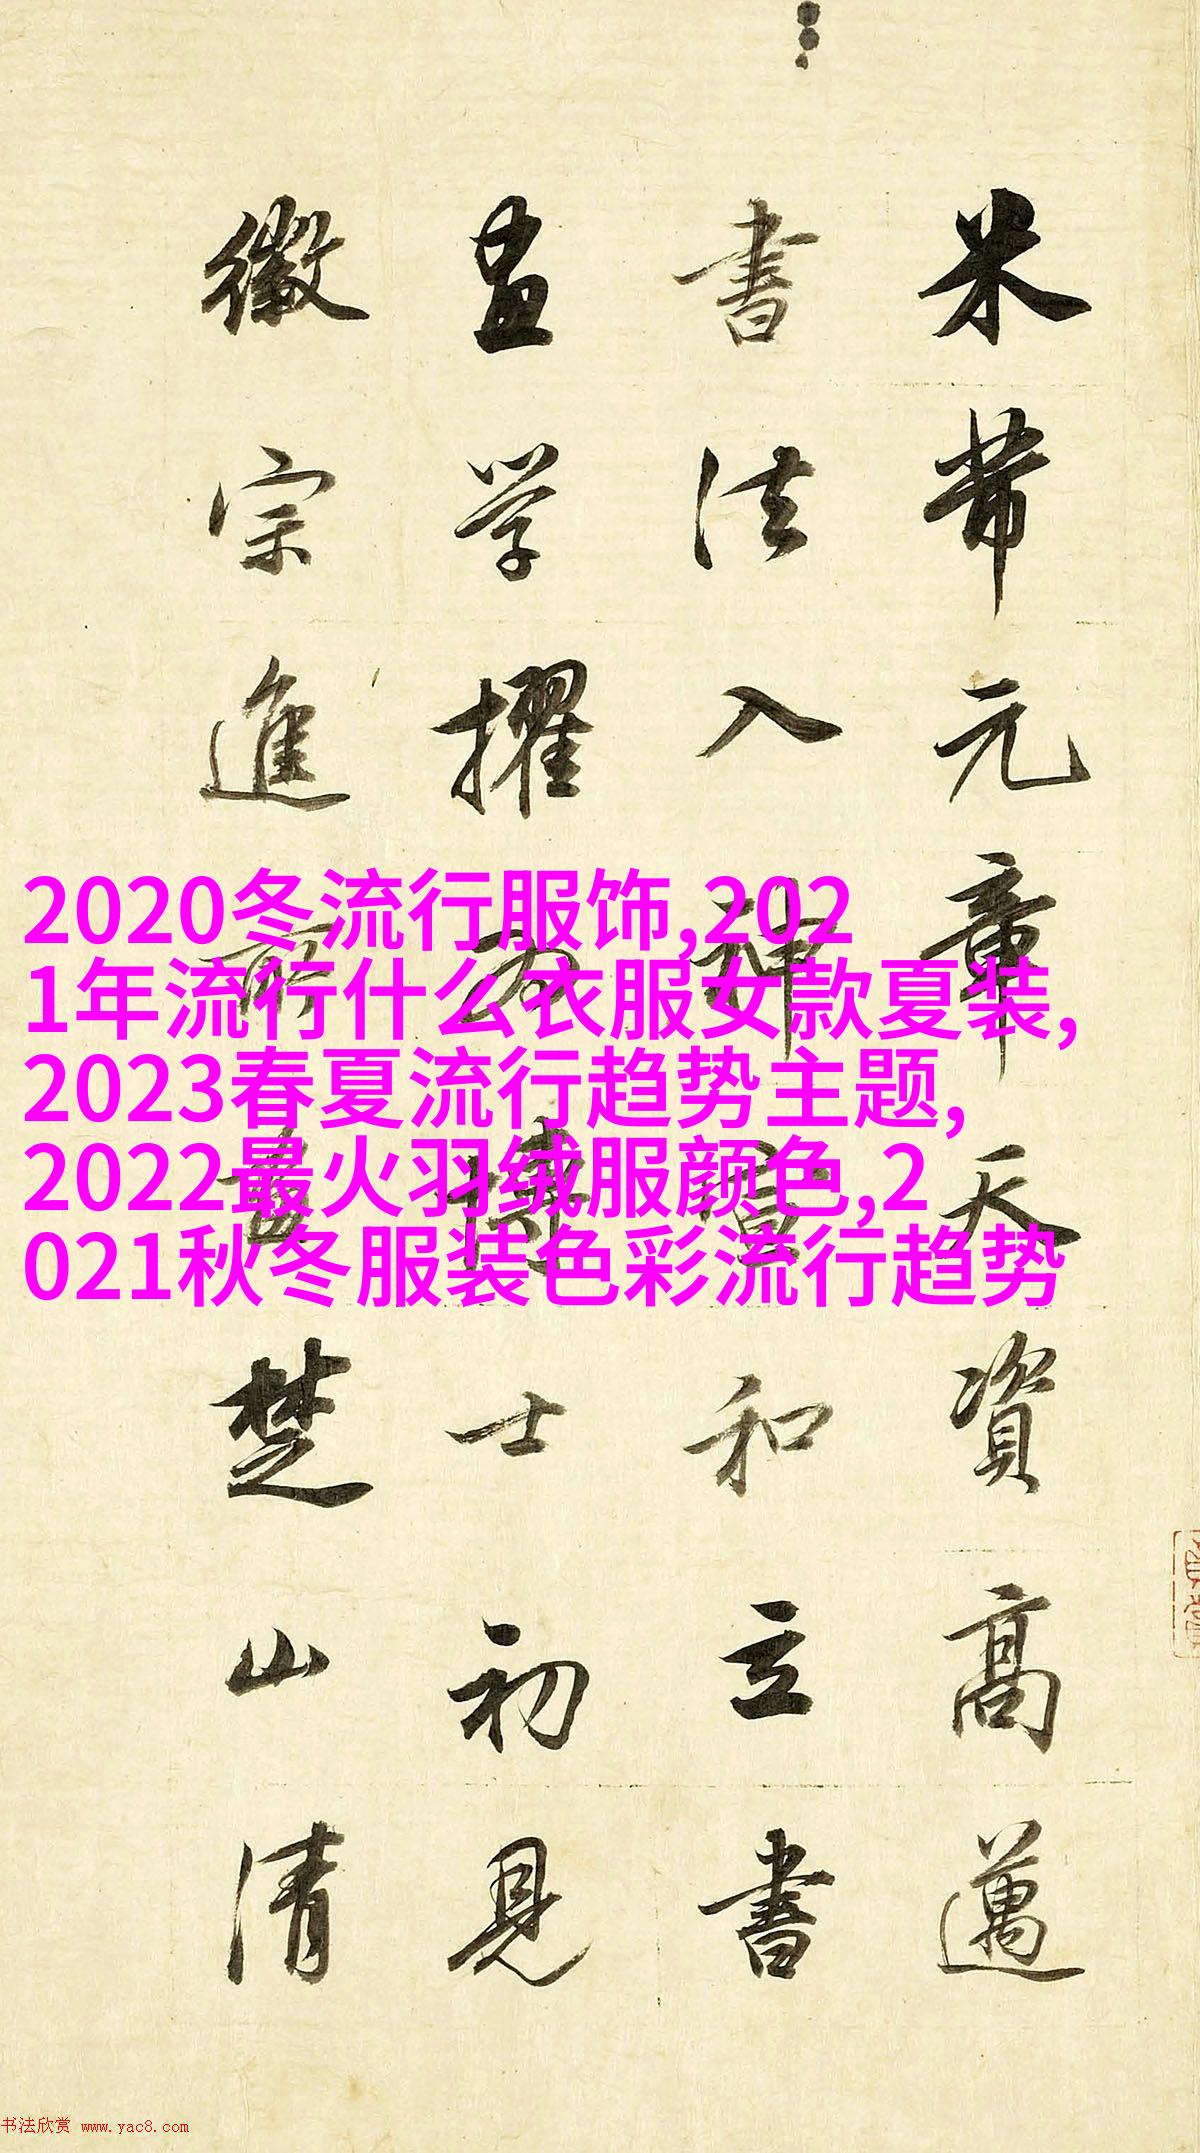 米芾元章天資高邁
書法入神宣和立書
畫学擢为博士初見
徽宗進所畫楚山清
2020冬流行服饰,202
1年流行什么衣服女款夏装,
2023春夏流行趋势主题,
2022最火羽绒服颜色,2
021秋冬服装色彩流行趋势
书法欣赏 www.yac8.com